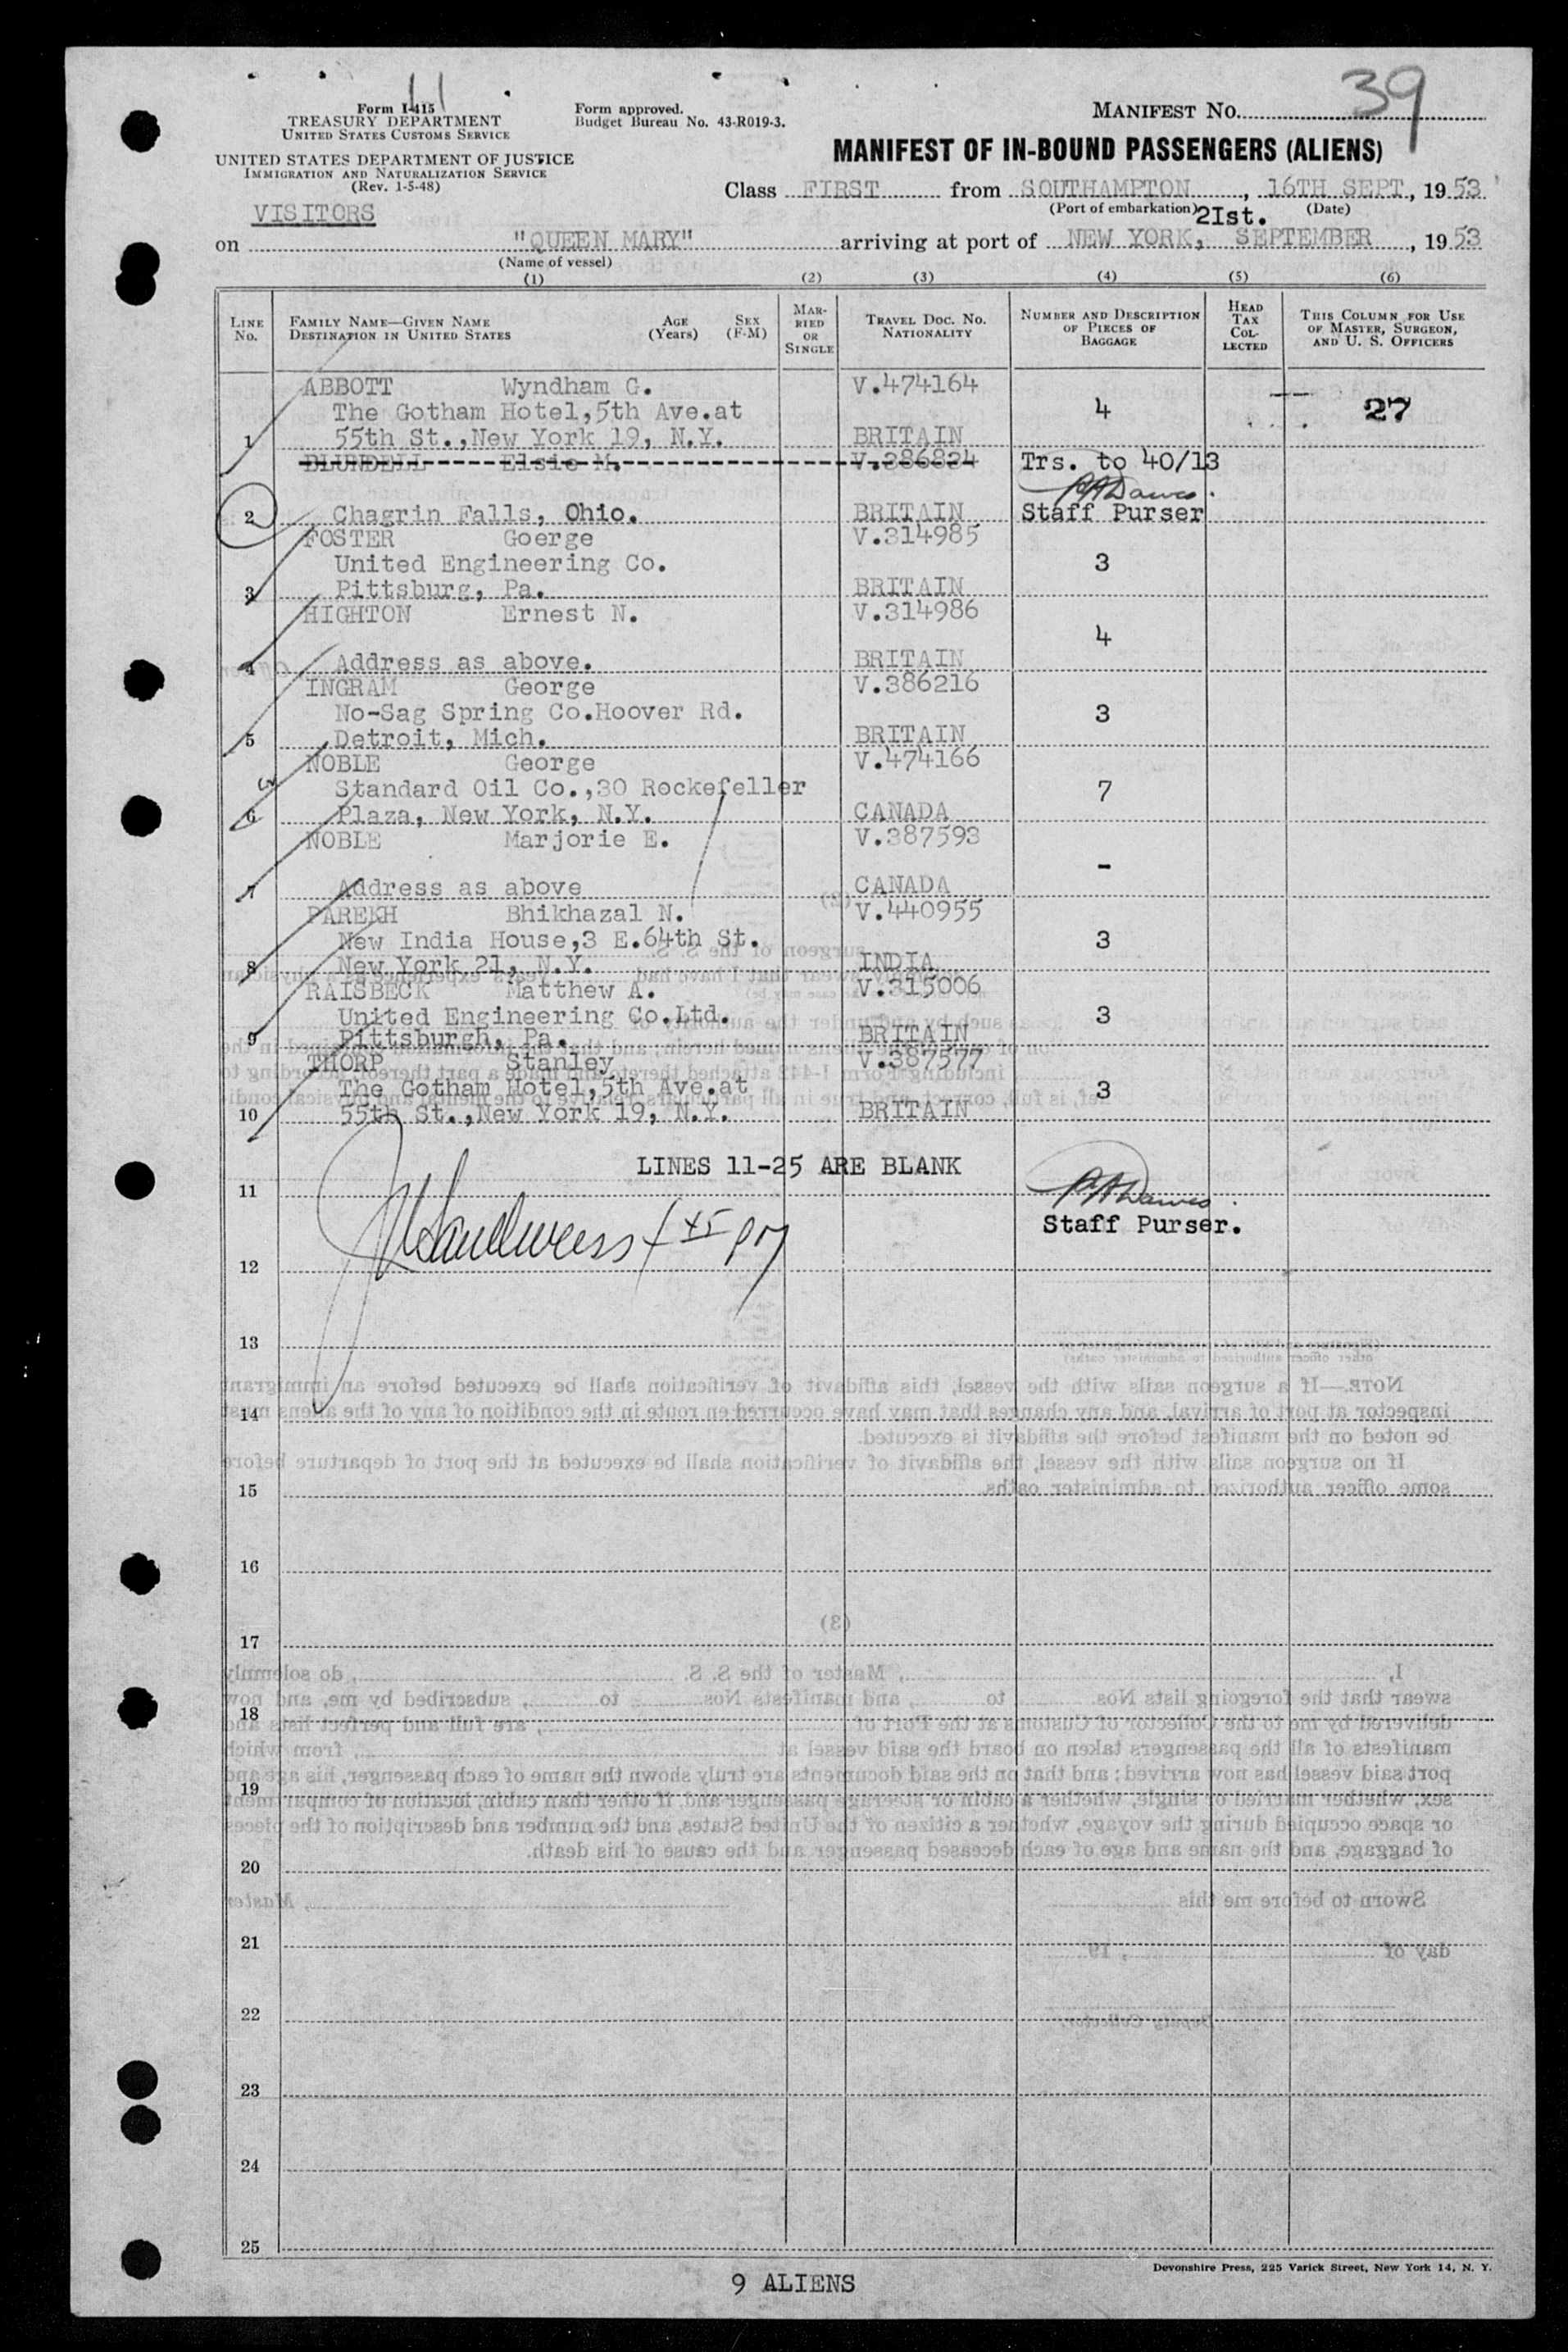 Form I-415
TREASURY DEPARTMENT
UNITED STATES CUSTOMS SERVICE
UNITED STATES DEPARTMENT OF JUSTICE
IMMIGRATION AND NATURALIZATION SERVICE
(Rev. 1-5-48)
Form approved.
Budget Bureau No. 43-R019-3.
MANIFEST No. 39
MANIFEST OF IN-BOUND PASSENGERS (ALIENS)
Class FIRST from SOUTHAMPTON, 16TH SEPT, 1953
(Port of embarkation) (Date)
VISITORS
21st.
on "QUEEN MARY" arriving at port of NEW YORK, SEPTEMBER, 1953
(Name of vessel)
(1) (2) (3) (4) (5) (6)
LINE No. FAMILY NAME—GIVEN NAME DESTINATION IN UNITED STATES AGE (Years) SEX (F-M) MARRIED OR SINGLE TRAVEL DOC. NO. NATIONALITY NUMBER AND DESCRIPTION OF PIECES OF BAGGAGE HEAD TAX COLLECTED THIS COLUMN FOR USE OF MASTER, SURGEON, AND U. S. OFFICERS
ABBOTT Wyndham G. V.474164
The Gotham Hotel,5th Ave.at 4 27
1 55th St.,New York 19, N.Y. BRITAIN
BLUNDELL Elsie M. V.386824 Trs. to 40/13
2 Chagrin Falls, Ohio. BRITAIN Staff Purser
FOSTER Goerge V.314985
United Engineering Co. 3
3 Pittsburg, Pa. BRITAIN
HIGHTON Ernest N. V.314986
4
4 Address as above. BRITAIN
INGRAM George V.386216
No-Sag Spring Co.Hoover Rd. 3
5 Detroit, Mich. BRITAIN
NOBLE George V.474166
Standard Oil Co.,30 Rockefeller 7
6 Plaza, New York, N.Y. CANADA
NOBLE Marjorie E. V.387593
-
7 Address as above CANADA
PAREKH Bhikhazal N. V.440955
New India House,3 E.64th St. 3
8 New York 21, N.Y. INDIA
RAISBECK Matthew A. V.315006
United Engineering Co.Ltd. 3
9 Pittsburgh, Pa. BRITAIN
THORP Stanley V.387577
The Gotham Hotel,5th Ave.at 3
10 55th St.,New York 19, N.Y. BRITAIN
LINES 11-25 ARE BLANK
11
Staff Purser.
12
13
14
15
16
17
18
19
20
21
22
23
24
25
Devonshire Press, 225 Varick Street, New York 14, N. Y.
9 ALIENS